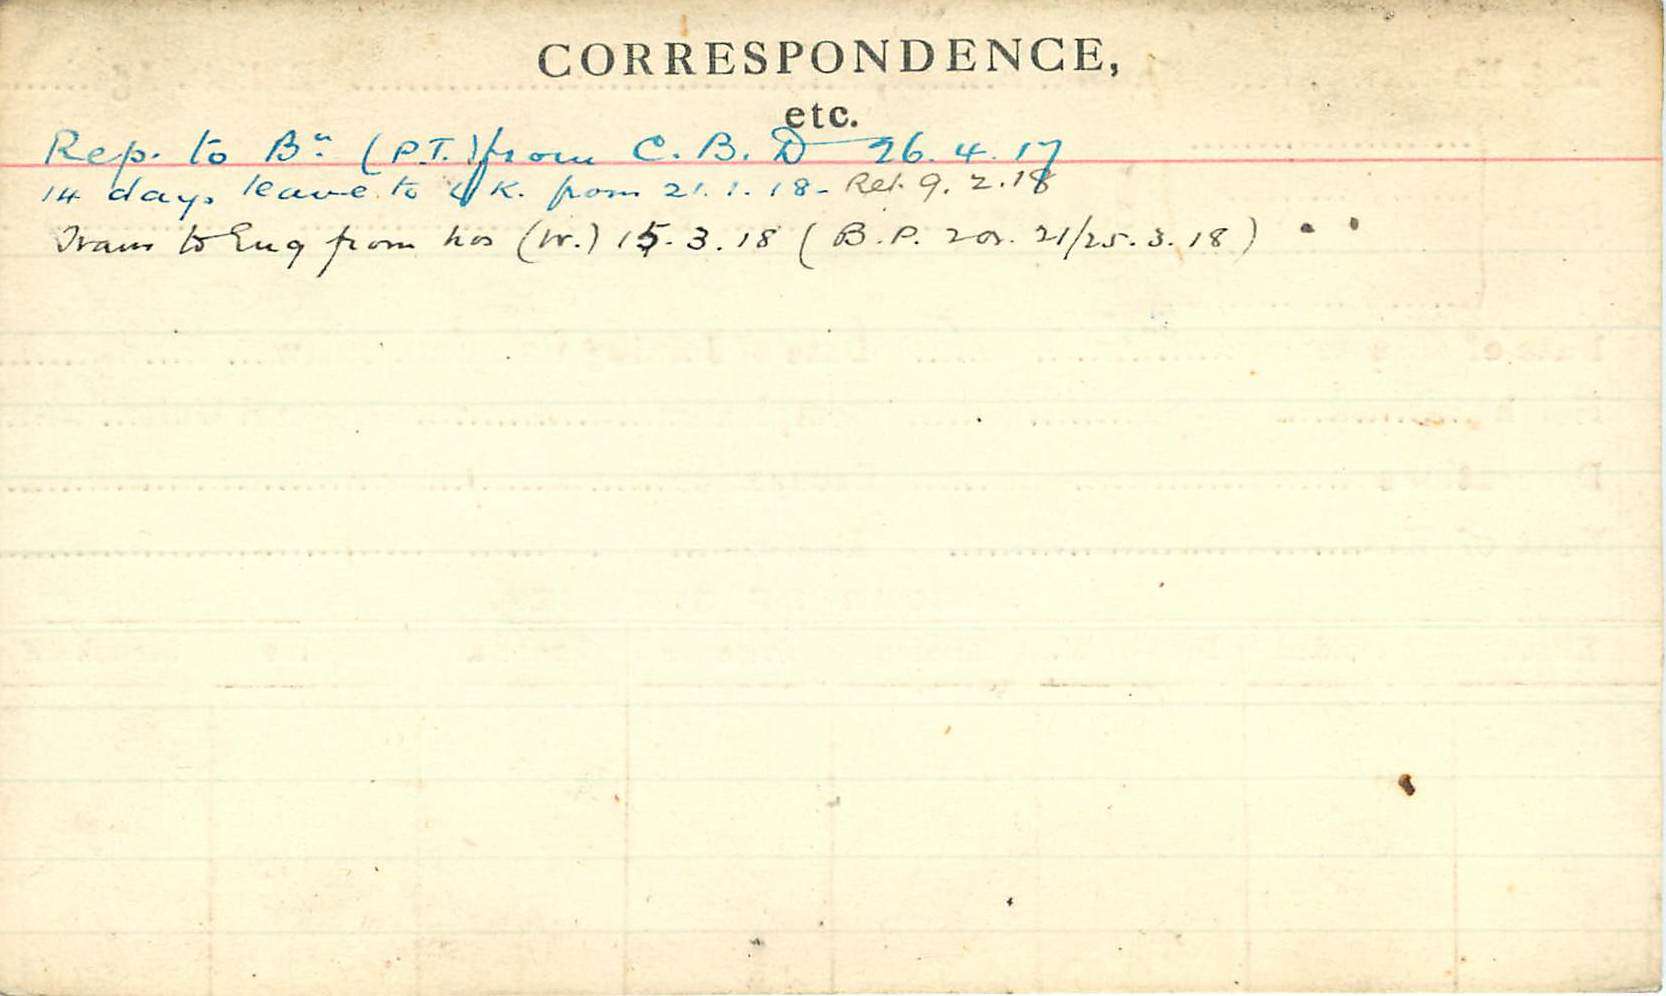 CORRESPONDENCE,
etc.
Rep. to Bn. (P.T.) from C. B. D 26. 4. 17
14 days leave to UK. from 21. 1. 18 - Ret. 9. 2. 18
Trans to Eng from hos (W.) 15. 3. 18 (B. P. 21/25. 3. 18)